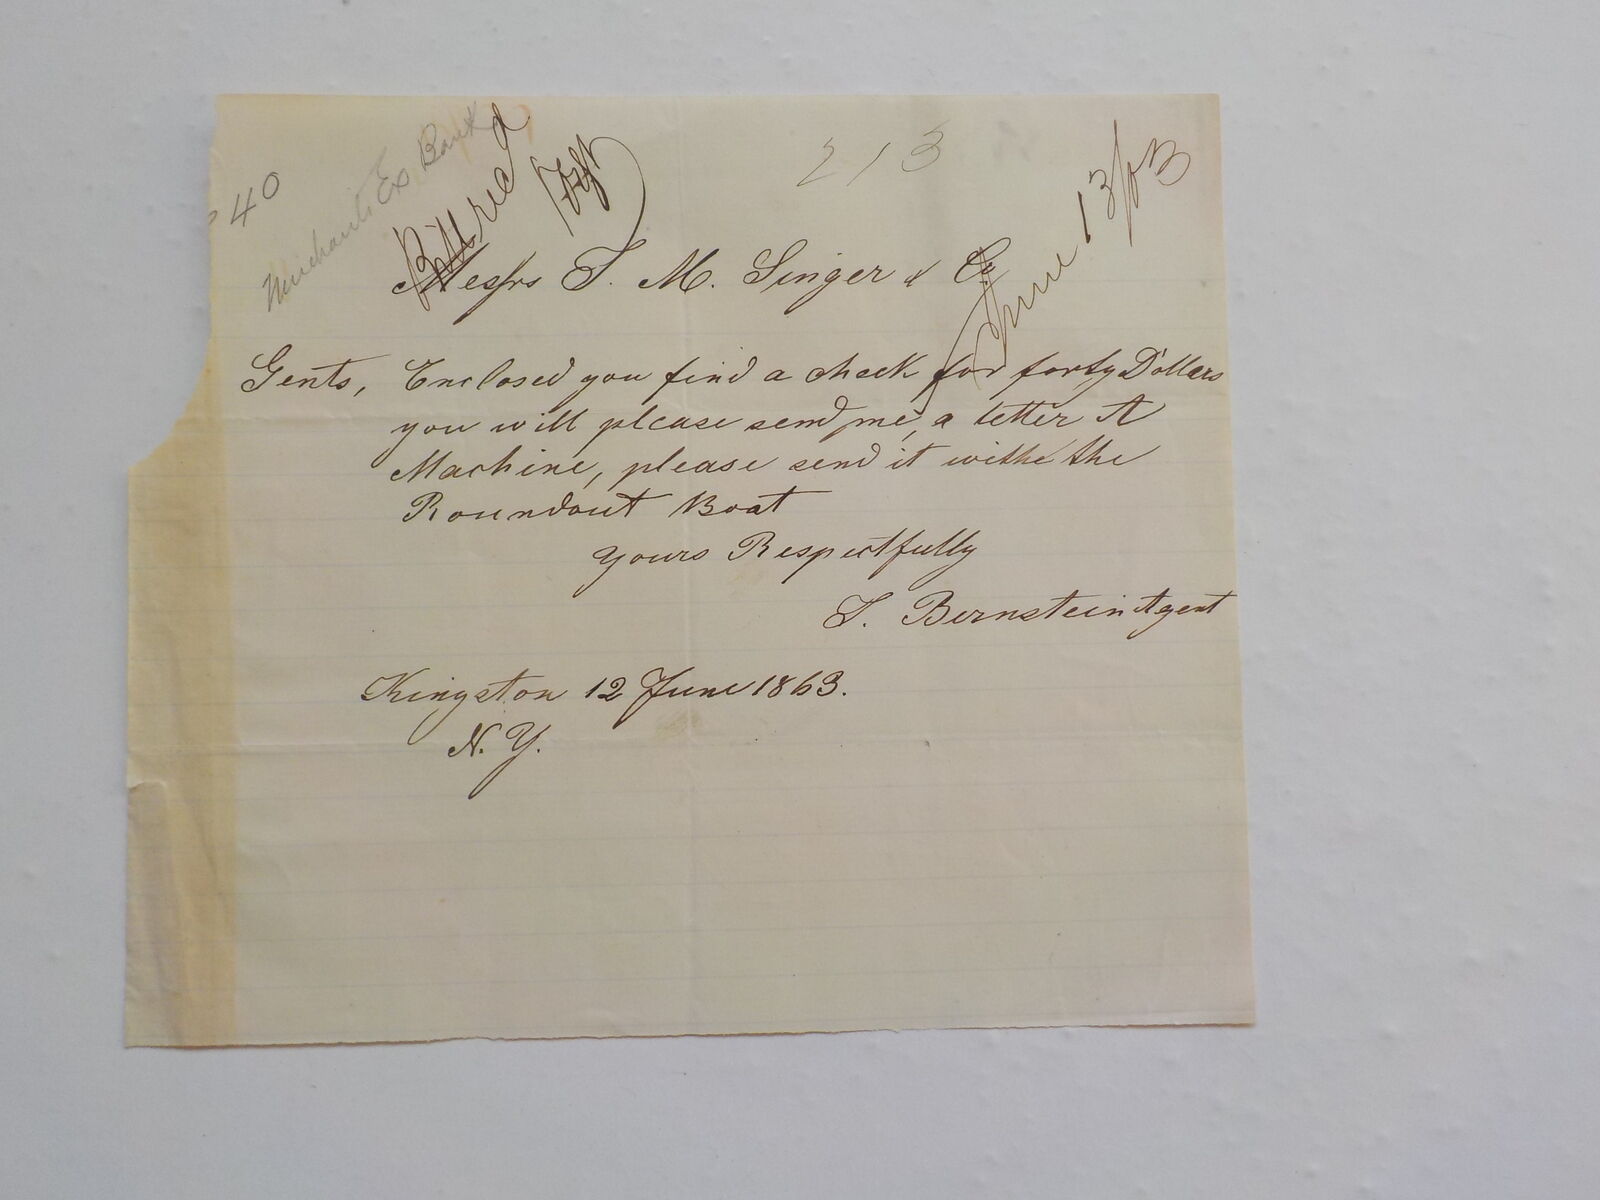 40
Merchants Ex Bank
213
June 13/63
Messrs I. M. Singer & Co
Gents, Enclosed you find a check for forty Dollars
you will please send me, a letter A
Machine, please send it withe the
Roundout Boat
Yours Respectfully
S. Bernstein Agent
Kingston 12 June 1863.
N. Y.